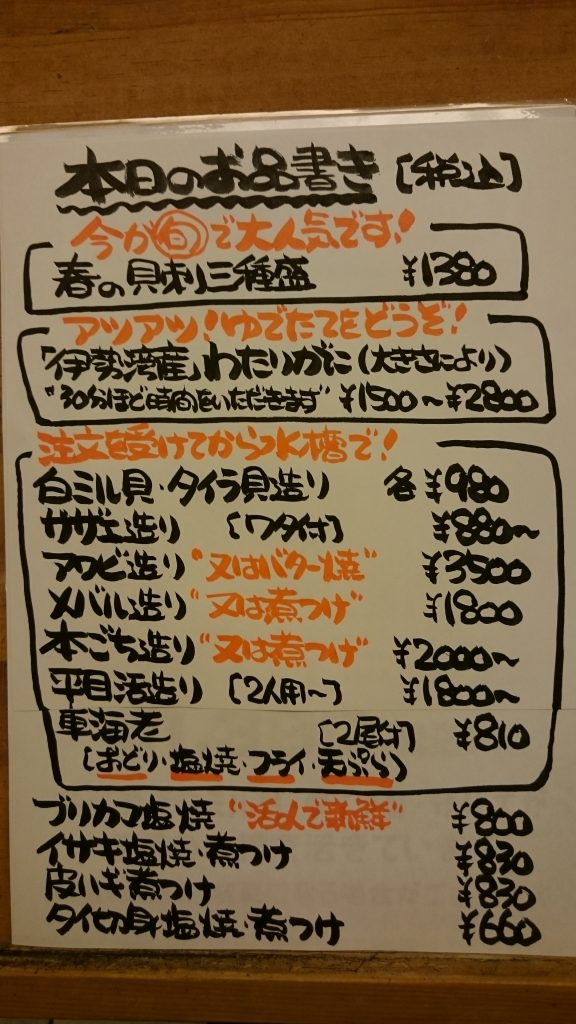 本日のお品書き [税込]
今が旬で大人気です!
春の貝刺し三種盛 ¥1380
アツアツ!ゆでたてをどうぞ!
「伊勢湾産」わたりがに(大きさにより)
"30分ほど時間をいただきます" ¥1500〜¥2800
注文を受けてから水槽で!
白ミル貝・タイラ貝造り 各¥980
サザエ造り [ワタ付] ¥880〜
アワビ造り "又はバター焼" ¥3500
メバル造り "又は煮つけ" ¥1800
本ごち造り "又は煮つけ" ¥2000〜
平目活造り [2人用〜] ¥1800〜
車海老 [2尾付] ¥810
(おどり・塩焼・フライ・天ぷら)
ブリカマ塩焼 "活〆で新鮮" ¥800
イサキ塩焼・煮つけ ¥830
皮ハギ煮つけ ¥830
タイ切身塩焼・煮つけ ¥660